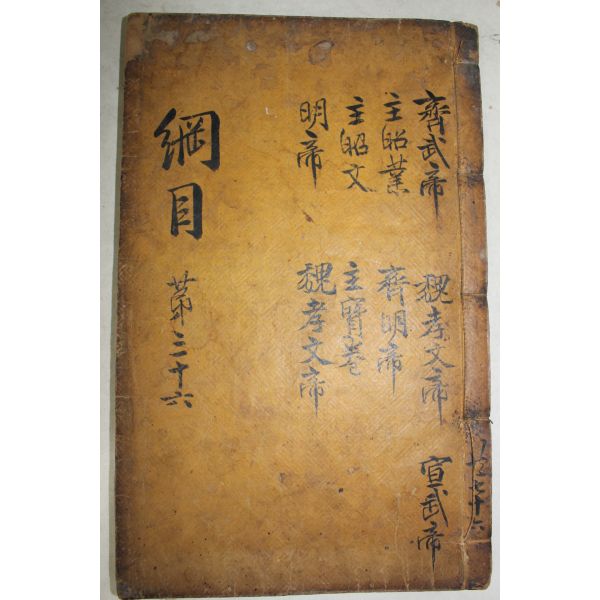 齊武帝 魏孝文帝 宣武帝
主昭業 齊明帝
主昭文 主寶卷
明帝 魏孝文帝
綱目
第三十六
七十六